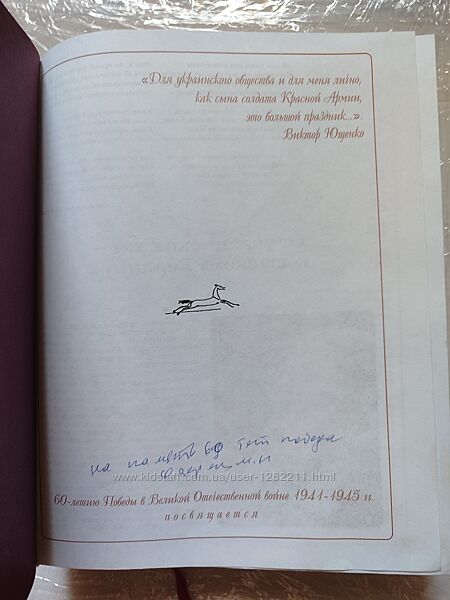 «Для украинского общества и для меня лично,
как сына солдата Красной Армии,
это большой праздник...».
Виктор Ющенко
на память 60 лет победы
М.Н
www.kidstaff.com.ua/user-1282211.html
60-летию Победы в Великой Отечественной войне 1941-1945 гг.
посвящается